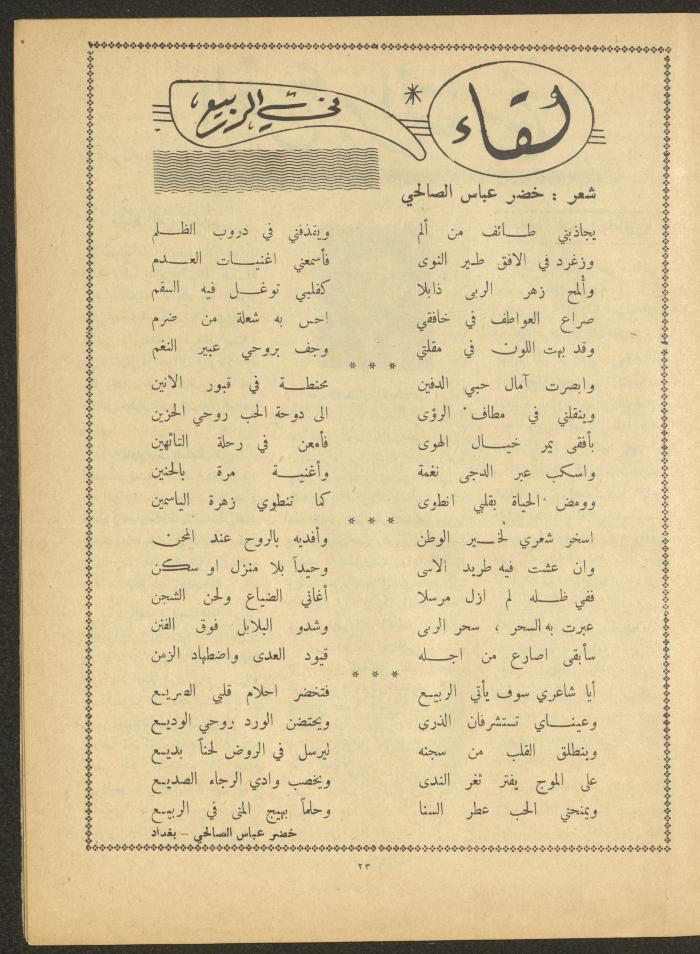 لقاء * في الربيع
شعر : خضر عباس الصالحي
يجاذبني طائف من ألم ويقذفني في دروب الظلم
وزغرد في الافق طير النوى فأسمعني اغنيات العدم
وألمح زهر الربى ذابلا كقلبي توغل فيه السقم
صراع العواطف في خافقي احس به شعلة من ضرم
وقد بهت اللون في مقلتي وجف بروحي عبير النغم
* * *
وابصرت آمال حبي الدفين محنطة في قبور الانين
وينقلني في مطاف الرؤى الى دوحة الحب روحي الحزين
بأفقى يمر خيال الهوى فأمعن في رحلة التائهين
واسكب عبر الدجى نغمة وأغنية مرة بالحنين
وومض الحياة بقلبي انطوى كما تنطوي زهرة الياسمين
* * *
اسخر شعري لخير الوطن وأفديه بالروح عند المحن
وان عشت فيه طريد الاسى وحيداً بلا منزل او سكن
ففي ظله لم ازل مرسلا أغاني الضياع ولحن الشجن
عبرت به السحر ، سحر الربى وشدو البلابل فوق الفنن
سأبقى اصارع من اجله قيود العدى واضطهاد الزمن
* * *
أيا شاعري سوف يأتي الربيع فتخضر احلام قلبي الصريع
وعيناي تستشرفان الذري ويحتضن الورد روحي الوديع
وينطلق القلب من سجنه ليرسل في الروض لحناً بديع
على الموج يفتر ثغر الندى ويخصب وادي الرجاء الصديع
ويمنحني الحب عطر السنا وحلماً بهيج المنى في الربيع
خضر عباس الصالحي - بغداد
٢٣